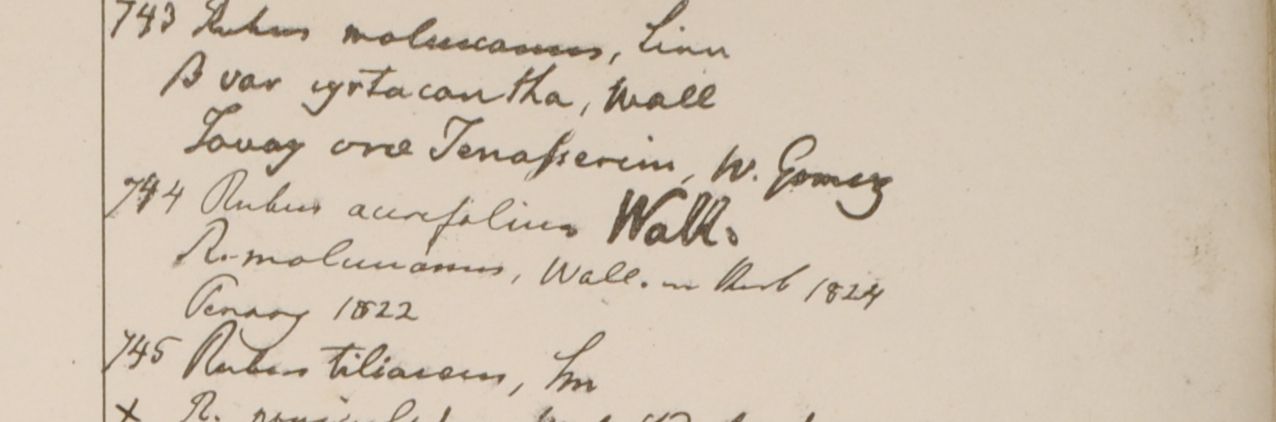 743 Rubus moluccanus, Linn
β var cyrtacantha, Wall
Tavoy ore Tenasserim, W. Gomez
744 Rubus acerifolius Wall.
R. moluccanus, Wall. in Herb 1824
Penang 1822
745 Rubus tiliaceus, Sm
x R.